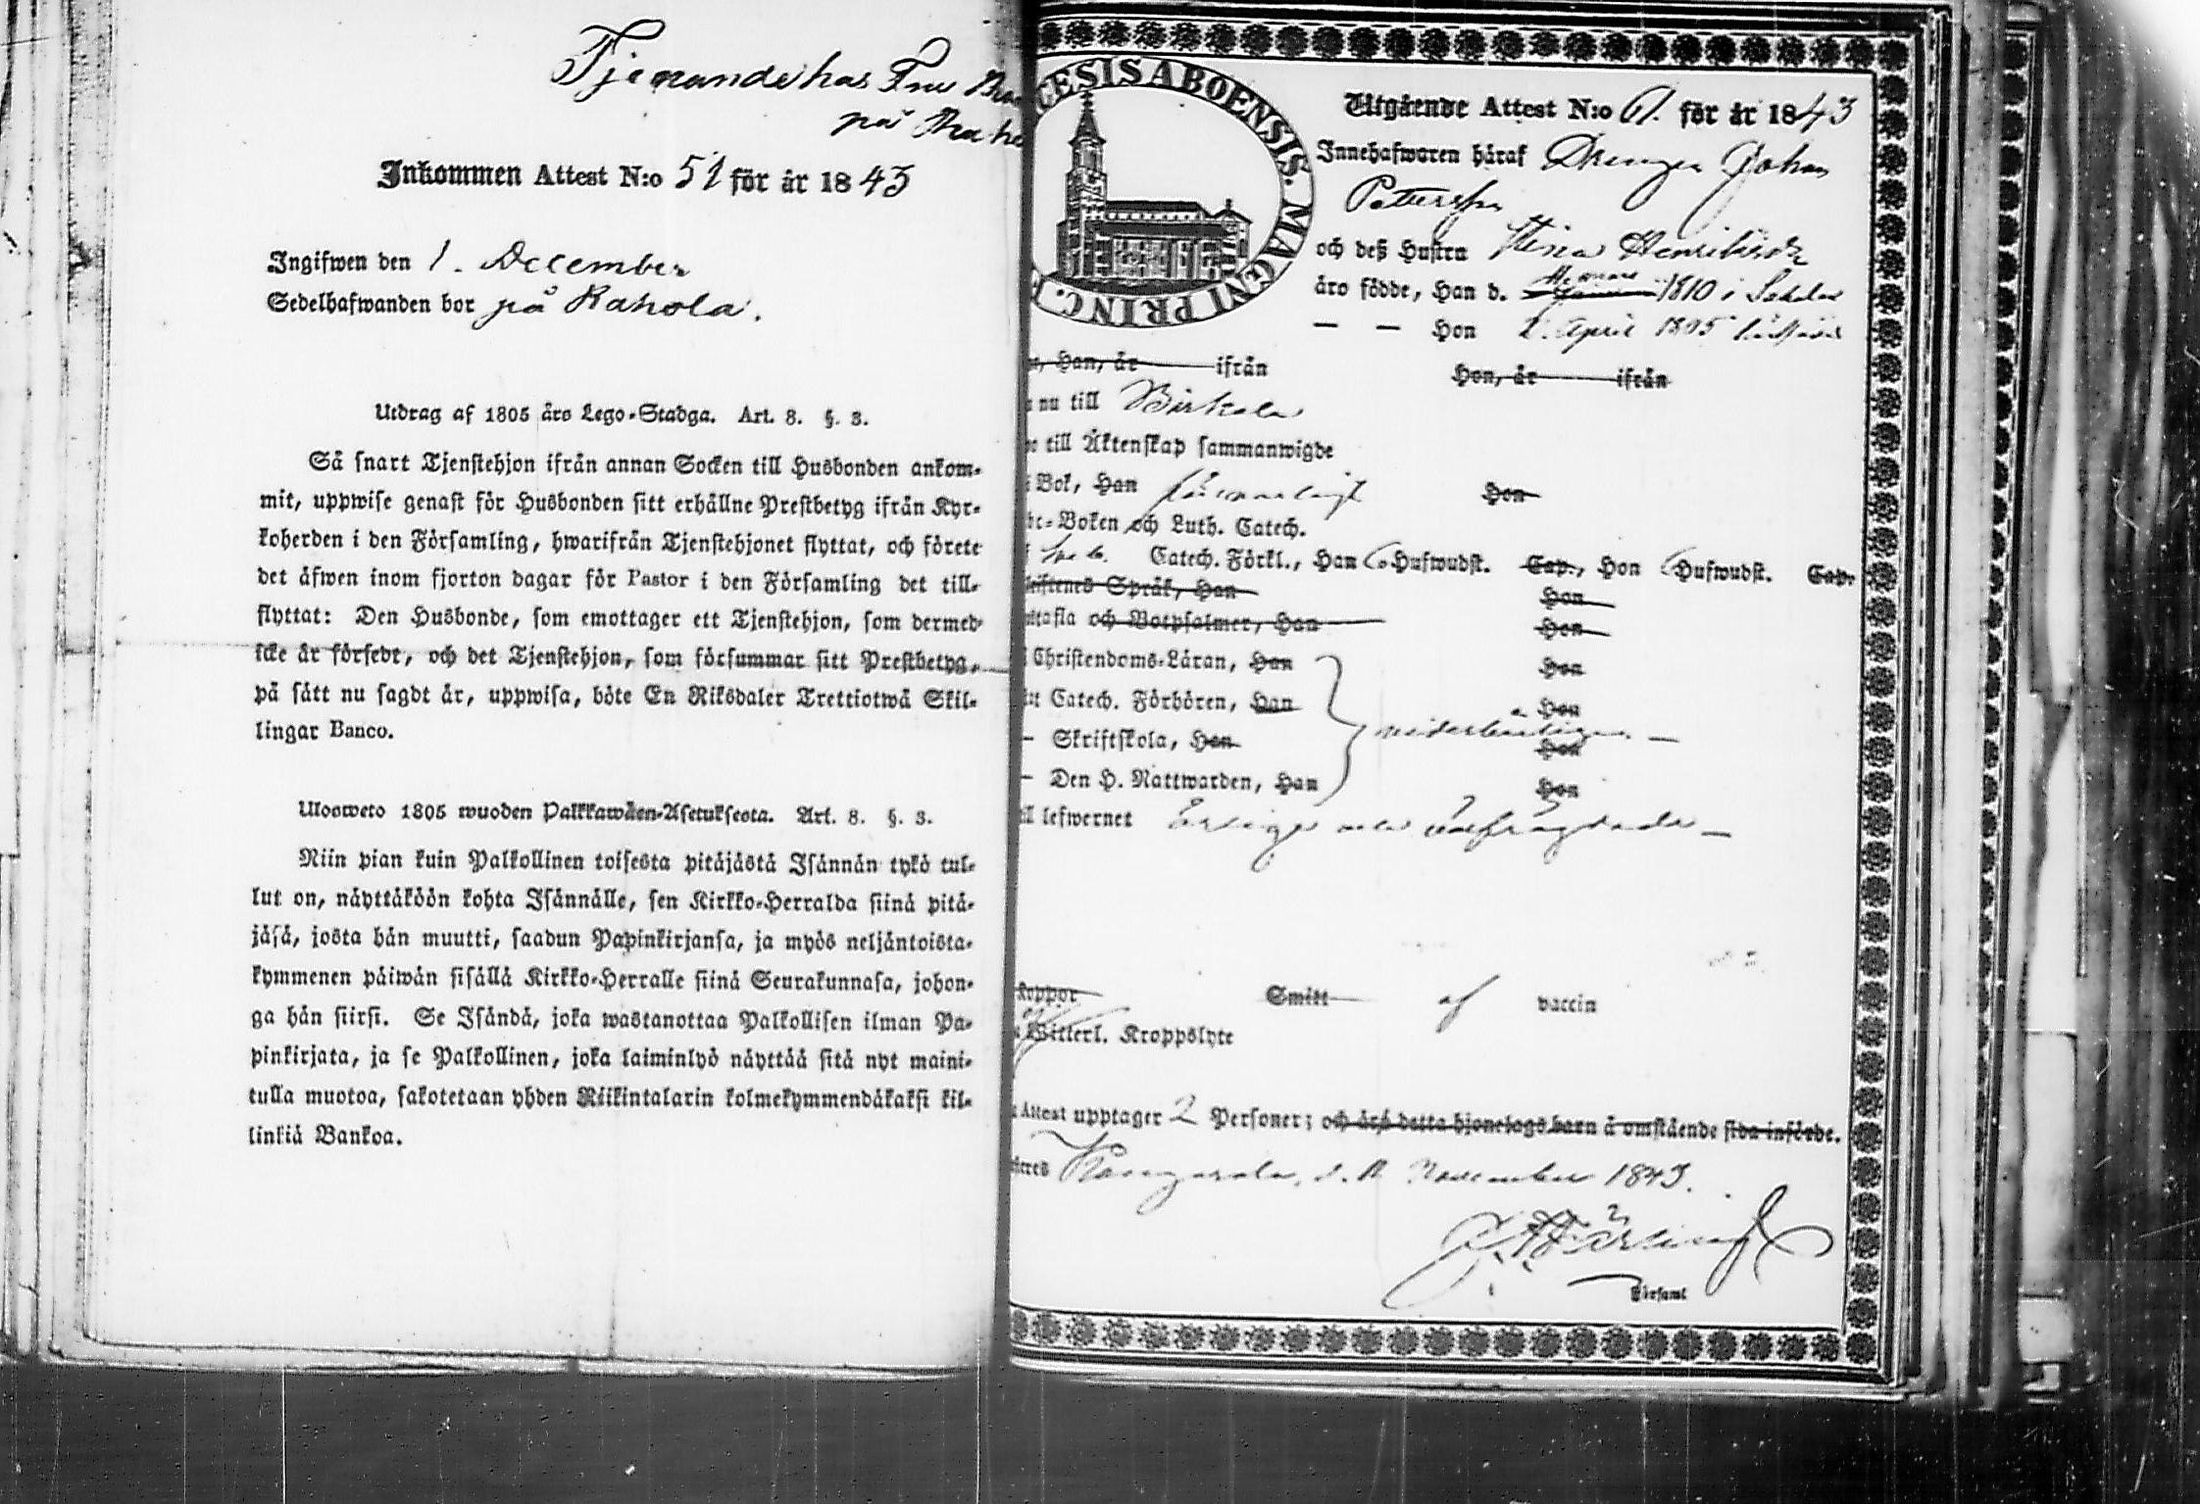 Tjenandehas Fru
på
Inkommen Attest N:o 51 för år 1843
Ingifwen den 1. December
Sedelhafwanden bor på Rahola.
Utdrag af 1805 års Lego-Stadga. Art. 8. §. 3.
Så snart Tjenstehjon ifrån annan Socken till Husbonden ankom-
mit, uppwise genast för Husbonden sitt erhållne Prestbetyg ifrån Kyr-
koherden i den Församling, hwarifrån Tjenstehjonet flyttat, och förete
det äfwen inom fjorton dagar för Pastor i den Församling det till-
flyttat: Den Husbonde, som emottager ett Tjenstehjon, som dermed
icke är försedt, och det Tjenstehjon, som försummar sitt Prestbetyg,
på sätt nu sagdt är, uppwisa, böte En Riksdaler Trettiotwå Skil-
lingar Banco.
Ulosweto 1805 wuoden Palkkawäen-Asetuksesta. Art. 8. §. 3.
Niin pian kuin Palkollinen toisesta pitäjästä Isännän tykö tul-
lut on, näyttäköön kohta Isännälle, sen Kirkko-Herralda siinä pitä-
jäsä, josta hän muutti, saadun Papinkirjansa, ja myös neljäntoista-
kymmenen päiwän sisällä Kirkko-Herralle siinä Seurakunnasa, johon-
ga hän siirsi. Se Isändä, joka wastanottaa Palkollisen ilman Pa-
pinkirjata, ja se Palkollinen, joka laiminlyö näyttää sitä nyt maini-
tulla muotoa, sakotetaan yhden Riikintalarin kolmekymmendäkaksi kil-
linkiä Bankoa.
CESIS ABOENSIS. MAGNI PRINC.
Utgående Attest N:o 61. för år 1843
Innehafwaren häraf Drengen Johan
Pettersson
och deß Hustru Stina Henriksdr
äro födde, Han d. 1810 i
— — Hon 2. April 1805
Han, år ifrån Hon, år ifrån
nu till Birkala
till Äktenskap sammanwigde
Bok, Han försvarligt Hon
Boken och Luth. Catech.
Catech. Förkl., Han 6 Hufwudst. Cap., Hon 6 Hufwudst. Cap.
Språk, Han Hon
tafla och Botpsalmer, Han Hon
Christendoms-Läran, Han Hon
Catech. Förhören, Han Hon
— Skriftskola, Han Hon
— Den H. Nattwarden, Han Hon
lefwernet ärlige och
Koppor Smitt af vaccin
Witterl. Kroppslyte
Attest upptager 2 Personer; och äro detta hjonelags barn å omstående sida införde.
Kangasala, d. November 1843.